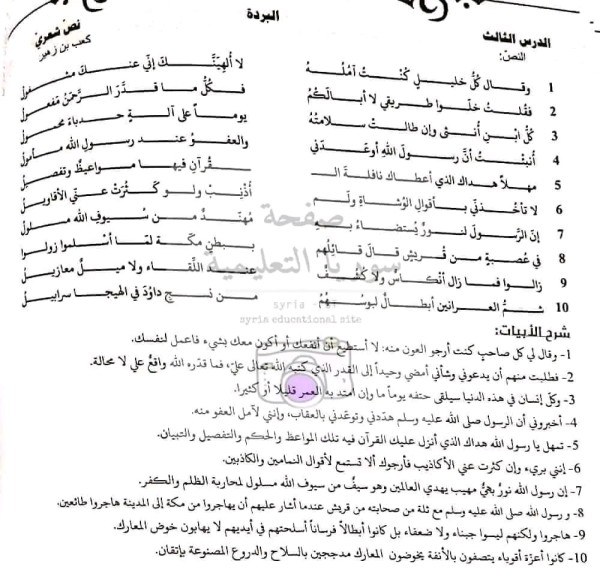 البردة
الدرس الثالث
نص شعري
كعب بن زهير
النص:
1 وقال كُلُّ خليلٍ كُنتُ آمُلُهُ لا أُلهِيَنَّكَ إنّي عنكَ مشغولُ
2 فقلتُ خلّوا طريقي لا أبالَكُمُ فكلُّ ما قدَّرَ الرَّحمنُ مفعولُ
3 كُلُّ ابنِ أُنثى وإن طالت سلامتُهُ يوماً على آلةٍ حدباءَ محمولُ
4 أُنبئتُ أنَّ رسولَ اللهِ أوعَدَني والعفوُ عند رسولِ الله مأمولُ
5 مهلاً هداكَ الذي أعطاكَ نافلةَ الـ ـقرآنِ فيها مواعيظٌ وتفصيلُ
6 لا تأخذنّي بأقوالِ الوُشاةِ ولم أُذنِبْ ولو كَثُرَتْ عنّي الأقاويلُ
7 إنّ الرَّسولَ لنورٌ يُستضاءُ به مُهنَّدٌ من سُيوفِ الله مسلولُ
8 في عُصبةٍ من قُريشٍ قالَ قائلُهم ببطنِ مكّةَ لمّا أسلموا زولوا
9 زالوا فما زالَ أنكاسٌ ولا كُشُفٌ عندَ اللّقاءِ ولا ميلٌ معازيلُ
10 شُمُّ العرانينِ أبطالٌ لَبوسُهُمُ من نسجِ داوُدَ في الهيجا سرابيلُ
صفحة
سوريا التعليمية
syria
syria educational site
شرح الأبيات:
1- وقال لي كل صاحبٍ كنت أرجو العون منه: لا أستطيع أن أنفعك أو أكون معك بشيء فاعمل لنفسك.
2- فطلبت منهم أن يدعوني وشأني أمضي وحيداً إلى القدر الذي كتبه الله تعالى عليّ، فما قدّره الله واقعٌ عليّ لا محالة.
3- وكلّ إنسان في هذه الدنيا سيلقى حتفه يوماً ما وإن امتد به العمر قليلاً أو كثيرا.
4- أخبروني أن الرسول صلى الله عليه وسلم هدّدني وتوعّدني بالعقاب، وإنني لآمل العفو منه.
5- تمهل يا رسول الله هداك الذي أنزل عليك القرآن فيه تلك المواعظ والحكم والتفصيل والتبيان.
6- إنني بريء وإن كثرت عني الأكاذيب فأرجوك ألا تستمع لأقوال النمامين والكاذبين.
7- إن رسول الله نورٌ بهيٌّ مهيب يهدي العالمين وهو سيفٌ من سيوف الله مسلول لمحاربة الظلم والكفر.
8- و رسول الله صلى الله عليه وسلم مع ثلة من صحابته من قريش عندما أشار عليهم أن يهاجروا من مكة إلى المدينة هاجروا طائعين.
9- هاجروا ولكنهم ليسوا جبناء ولا ضعفاء بل كانوا أبطالاً فرساناً أسلحتهم في أيديهم لا يهابون خوض المعارك.
10- كانوا أعزّة أقوياء يتصفون بالأنفة يخوضون المعارك مدججين بالسلاح والدروع المصنوعة بإتقان.